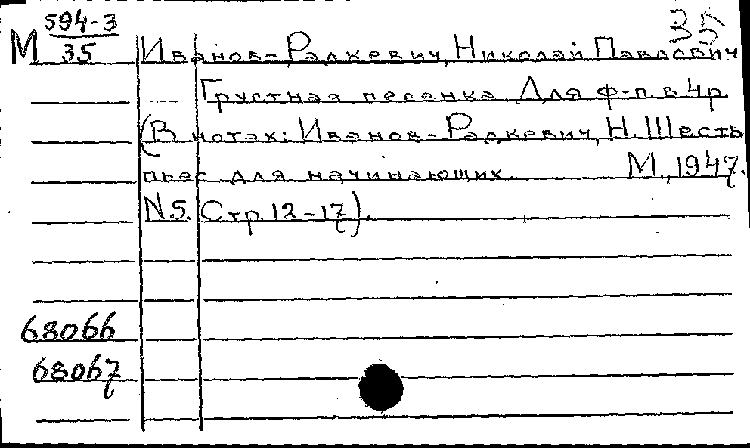 594-3 35
М 35 Иванов-Радкевич, Николай Павлович
Грустная песенка. Для ф-п. в 4 р.
(В нотах: Иванов-Радкевич, Н. Шесть
пьес для начинающих. М., 1947.
N 5. Стр. 12-17).
68066
68067